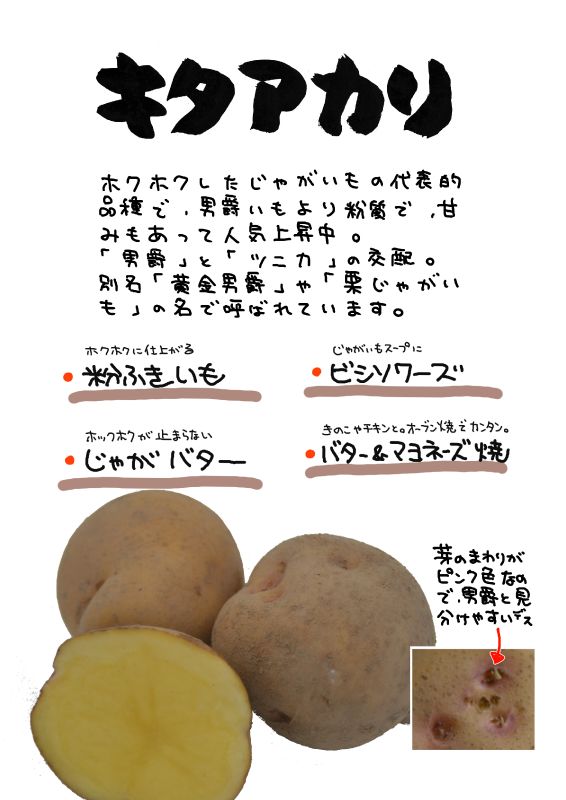 キタアカリ
ホクホクしたじゃがいもの代表的
品種で、男爵いもより粉質で、甘
みもあって人気上昇中。
「男爵」と「ツニカ」の交配。
別名「黄金男爵」や「栗じゃがい
も」の名で呼ばれています。
ホクホクに仕上がる
粉ふきいも
じゃがいもスープに
ビシソワーズ
ホックホクが止まらない
じゃがバター
きのこやチキンと。オーブン焼でカンタン。
バター&マヨネーズ焼
芽のまわりが
ピンク色なの
で、男爵と見
分けやすいデス